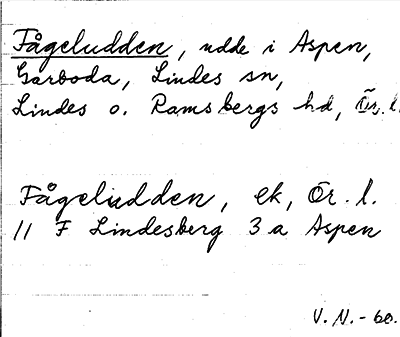 Fågeludden, udde i Aspen,
Garboda, Lindes sn,
Lindes o. Ramsbergs hd, Ör. l.
Fågeludden, ek, Ör. l.
11 F Lindesberg 3 a Aspen
V. N. - 60.